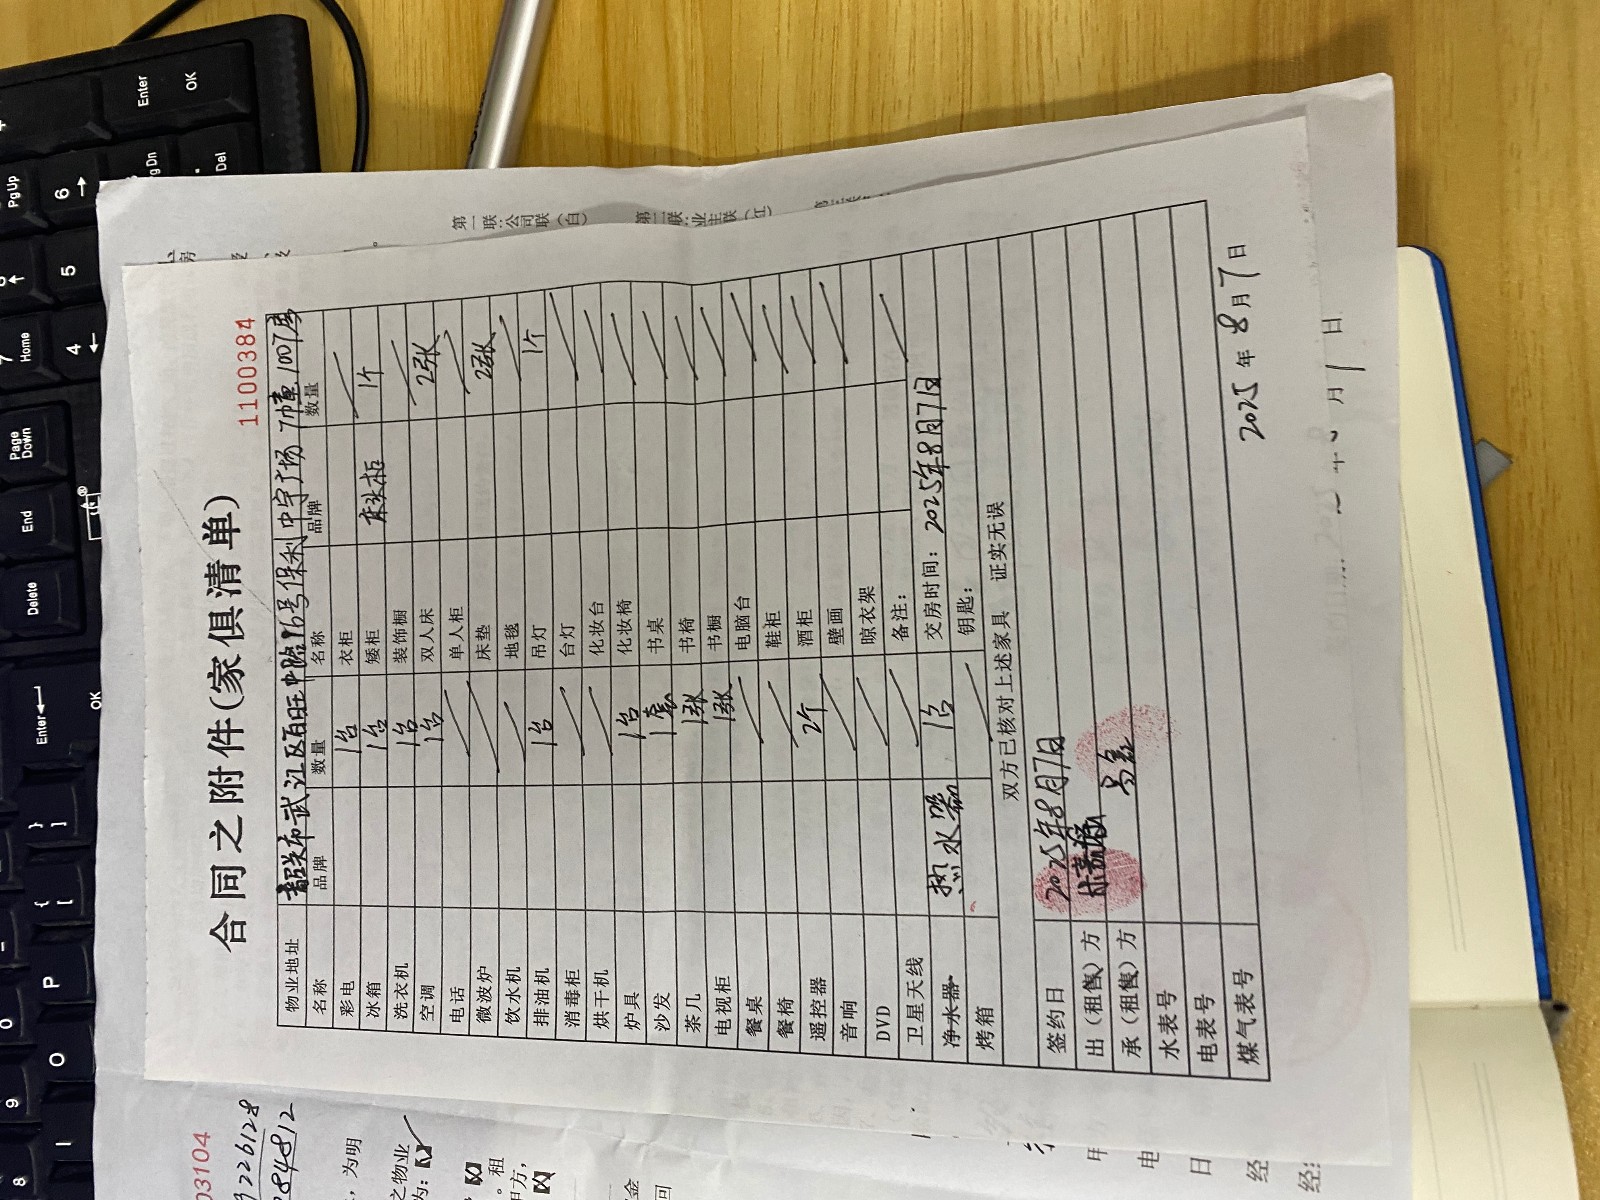 1100384
合同之附件(家俱清单)
物业地址 韶关市武江区百旺中路16号保利中宇广场7幢1007房
名称 品牌 数量 名称 品牌 数量
彩电 1台 衣柜 /
冰箱 1台 矮柜 床头柜 1个
洗衣机 1台 装饰橱 /
空调 1台 双人床 2张
电话 / 单人柜 /
微波炉 / 床垫 2张
饮水机 / 地毯 /
排油机 1台 吊灯 1个
消毒柜 / 台灯 /
烘干机 / 化妆台 /
炉具 1台 化妆椅 /
沙发 1套 书桌 /
茶几 1张 书椅 /
电视柜 1张 书橱 /
餐桌 / 电脑台 /
餐椅 / 鞋柜 /
遥控器 2个 酒柜 /
音响 / 壁画 /
DVD / 晾衣架
卫星天线 / 备注: /
净水器 热水器 1台 交房时间: 2025年8月7日
烤箱 / 钥匙:
双方已核对上述家具 证实无误
签约日 2025年8月7日
出(租售)方
承(租售)方
水表号
电表号
煤气表号
2025年8月7日
月1日
第一联:公司联(白)
第二联:业主联(红)
03104
9226128
284812
,为明
之物业
为:
。租
甲方,
金
回
Enter
OK
PgUp
6
PgDn
Del
5
7
Home
4
Page Down
End
Delete
Enter
OK
}
]
{
[
P
O
0
9
8